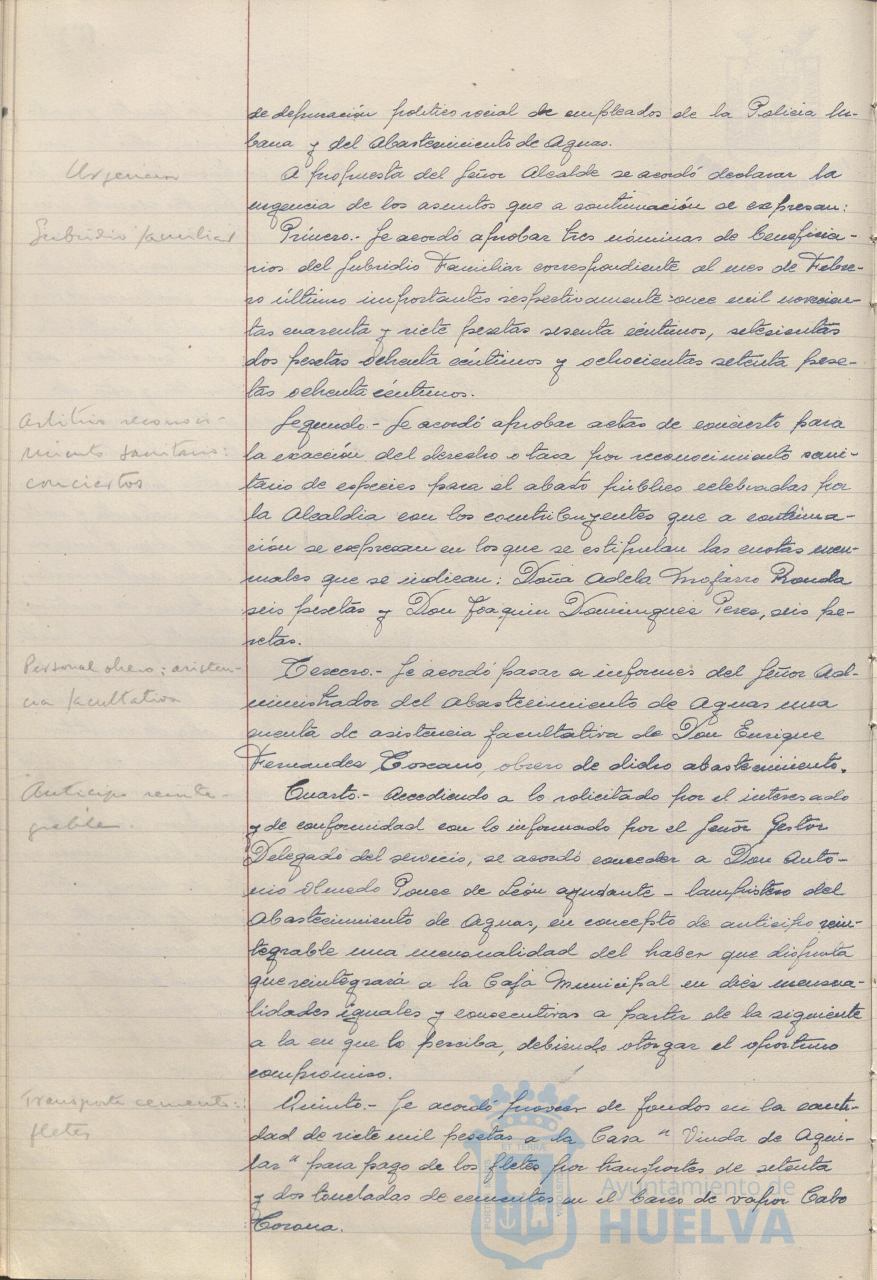 de depuración político social de empleados de la Policia Ur-
bana y del Abastecimiento de Aguas.
Urgencia
A propuesta del Señor Alcalde se acordó declarar la
urgencia de los asuntos que a continuación se expresan:
Subsidio familiar
Primero.- Se acordó aprobar tres nóminas de beneficia-
rios del Subsidio Familiar correspondiente al mes de Febre-
ro último importantes respectivamente once mil novecien-
tas cuarenta y siete pesetas sesenta céntimos, setecientas
dos pesetas ochenta céntimos y ochocientas setenta pese-
tas ochenta céntimos.
Arbitrio reconoci-
miento sanitario:
conciertos
Segundo.- Se acordó aprobar actas de concierto para
la exacción del derecho o tasa por reconocimiento sani-
tario de especies para el abasto público celebradas por
la Alcaldia con los contribuyentes que a continua-
ción se expresan en los que se estipulan las cuotas men-
suales que se indican: Doña Adela Ronda
seis pesetas y Don Joaquin Domingues Peres, seis pe-
setas.
Personal obrero: asisten-
cia facultativa
Tercero.- Se acordó pasar a informes del Señor Ad-
ministrador del Abastecimiento de Aguas una
cuenta de asistencia facultativa de Don Enrique
Fernandes Toscano, obrero de dicho abastecimiento.
Anticipo reinte-
grable.
Cuarto.- Accediendo a lo solicitado por el interesado
y de conformidad con lo informado por el Señor Gestor
Delegado del servicio, se acordó conceder a Don Anto-
nio Olmedo Ponce de León ayudante-lampistero del
Abastecimiento de Aguas, en concepto de anticipo rein-
tegrable una mensualidad del haber que disfruta
que reintegrará a la Caja Municipal en dies mensua-
lidades iguales y consecutivas a partir de la siguiente
a la en que lo perciba, debiendo otorgar el oportuno
compromiso.
Transporte cemento:
fletes
Quinto.- Se acordó proveer de fondos en la canti-
dad de siete mil pesetas a la Casa " Viuda de Aqui-
las " para pago de los fletes por transportes de setenta
y dos toneladas de cementos en el barco de vapor Cabo
Corona.
Ayuntamiento de
HUELVA